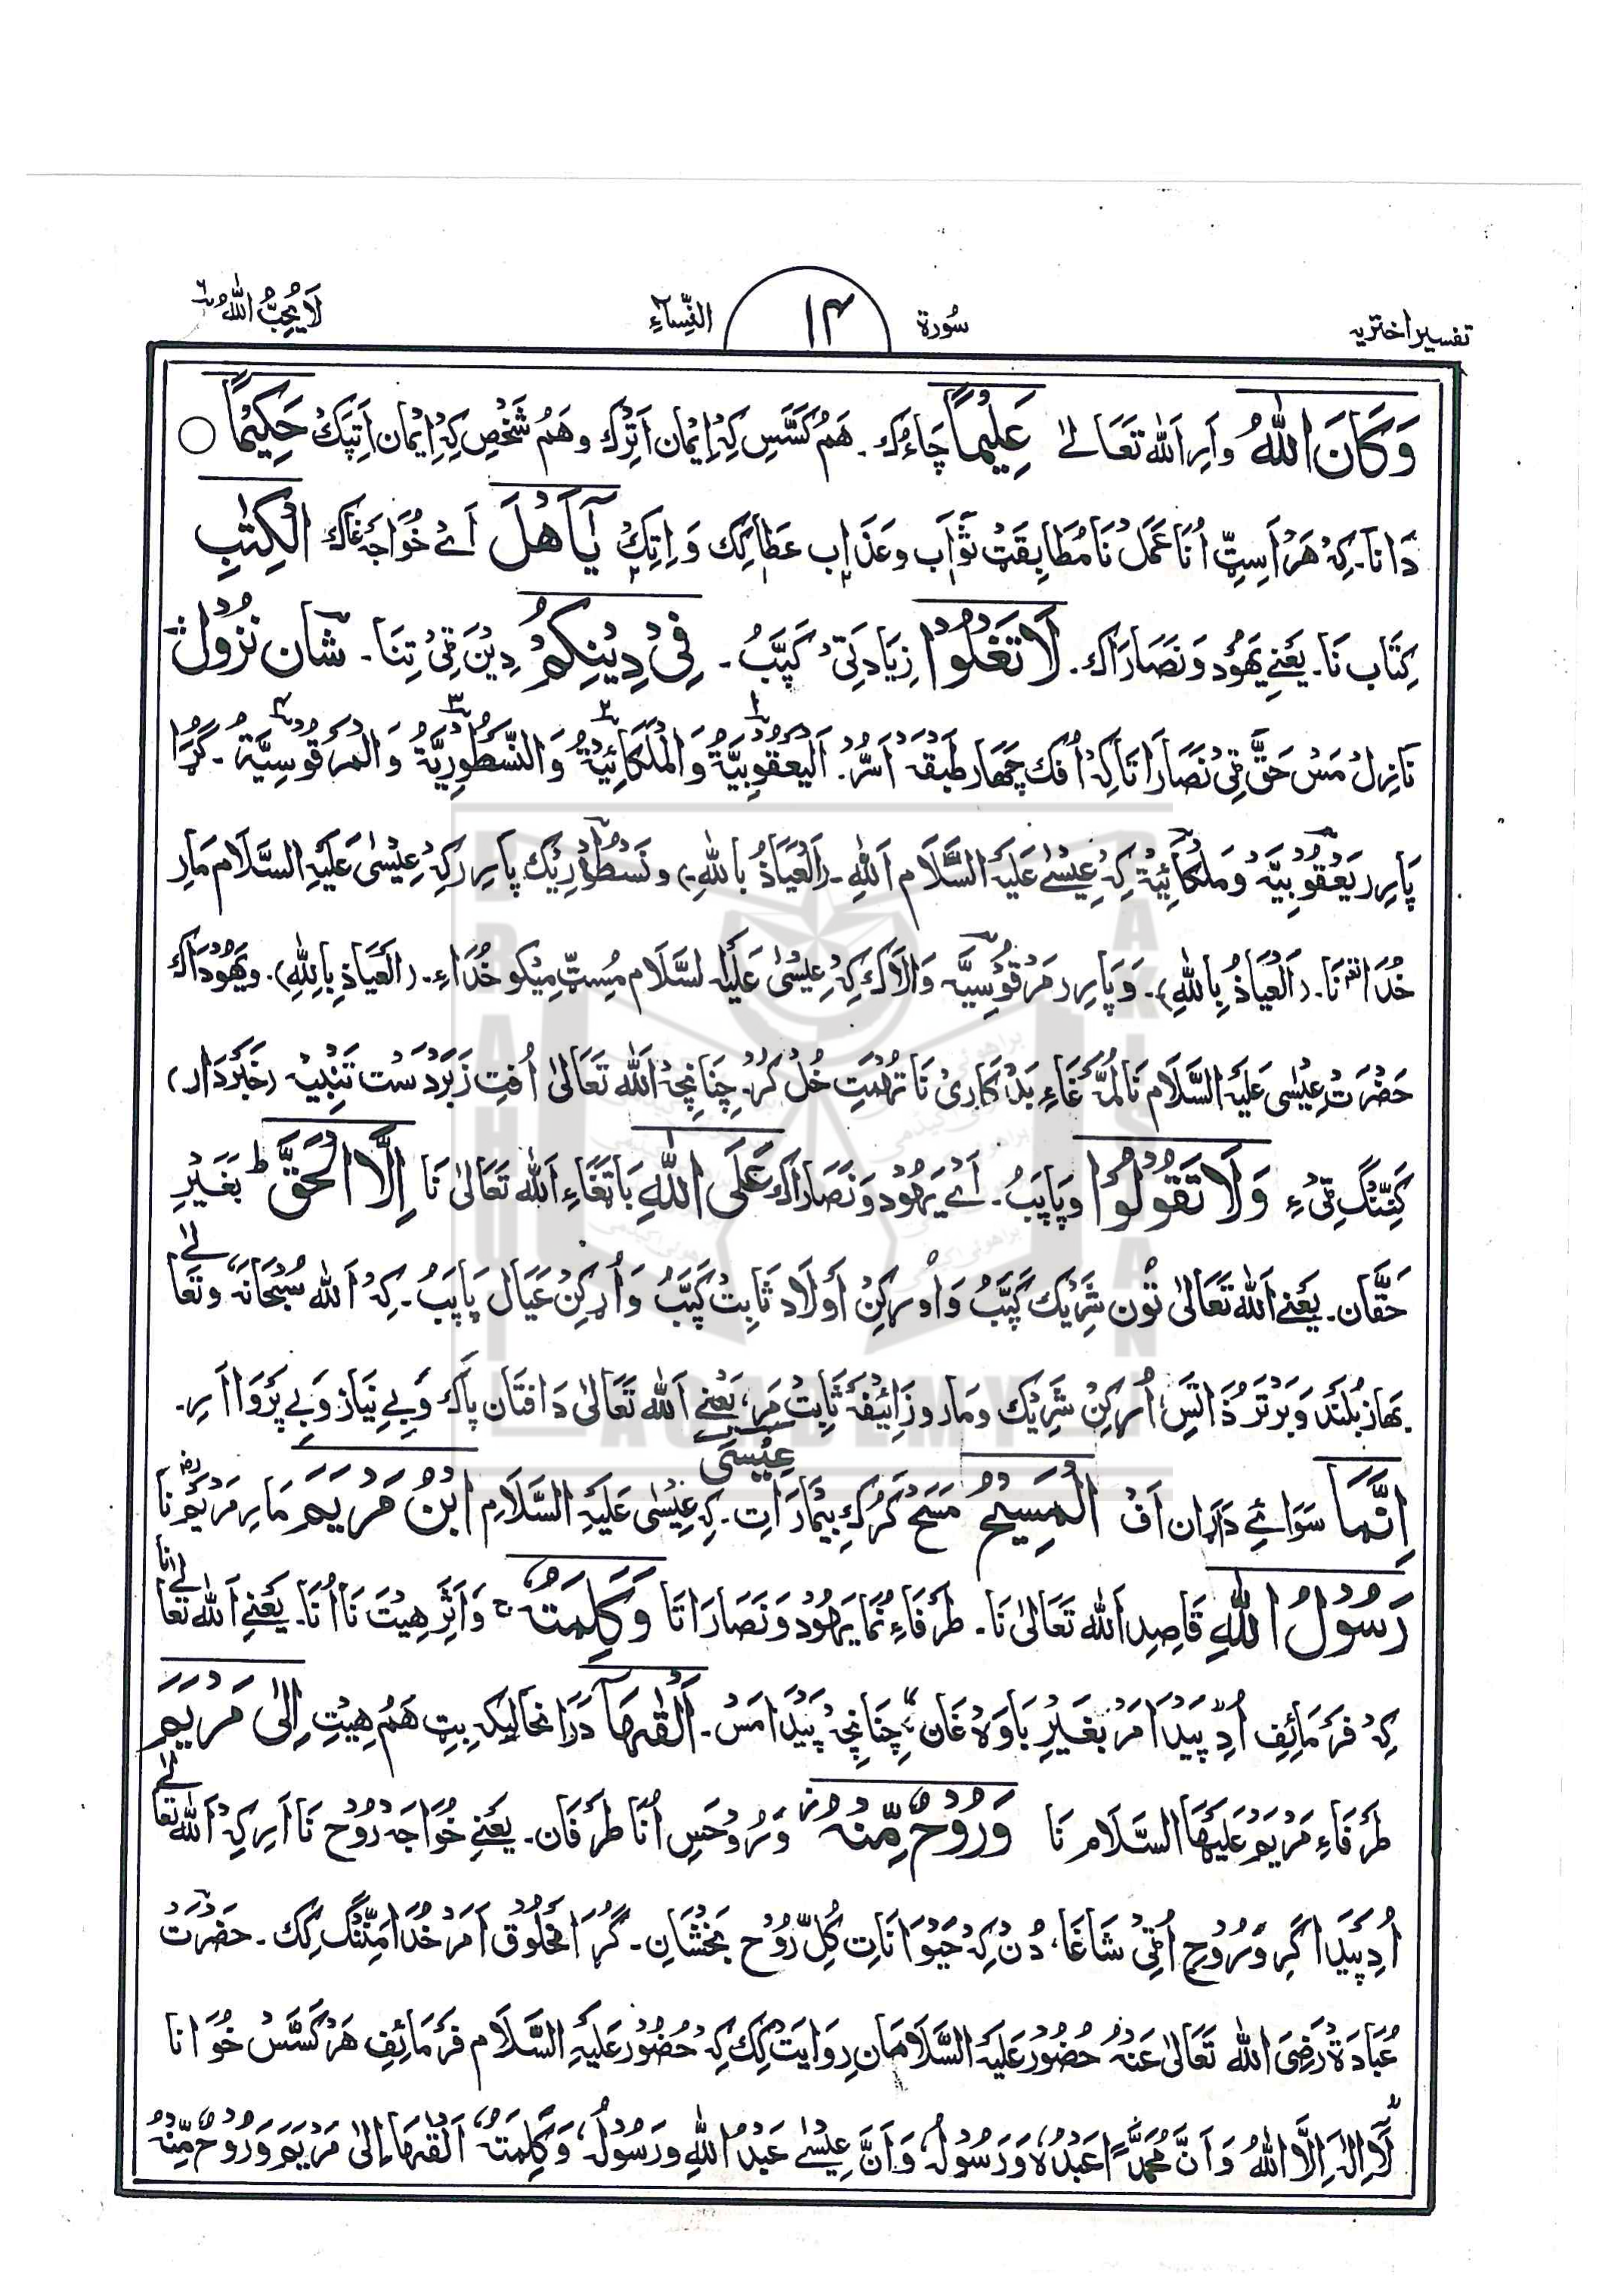 تفسیر اختریہ
سُورۃ
۱۴
النِّسَآءِ
لَا یُحِبُّ اللّٰہُ ۶
وَكَانَ اللّٰهُ وَاَرِ اَللہ تَعَالٰے عَلِیْمًا چَاءُک۔ ہَمُ کَسَّسِ کِہْ اِیْمَان اَتِرْک وہَمُ شَخْصِ کِہْ اِیْمَان اَتِپَکْ حَکِیْمًا ○
دَانَا۔ کِہْ ہَرْ اَسِٹِّ اُنَا عَمَلْ نَا مُطَابِقَتْ ثَوَاب وعَذَاب عَطَا کِک وَ اِتِکْ یٰٓاَهْلَ اَئے خُوَاجَہ غَاک الْکِتٰبِ
کِتَاب نَا۔ یَعْنِے یَہُوْد وَنَصَارَاک۔ لَا تَغْلُوْا زِیَادَتِیْ کَپَّبُ۔ فِیْ دِیْنِکُمْ دِیْنَ ٹِیْ تِنَا۔ شان نزول
نَازِلْ مَسْ حَقَّ ٹِیْ نَصَارَا تَا کِہْ اُفْک چَھَار طَبَقَہْ اَسُّرْ۔ اَلْیَعْقُوْبِیَّۃُ وَالْمَلْکَائِیَّۃُ وَالنَّسْطُوْرِیَّۃُ وَالْمَرْقُوْسِیَّۃُ۔ گُڑَا
پَارِر یَعْقُوْبِیَّہْ وَمَلْکَائِیَّۃْ کِہْ عِیْسٰے عَلَیْہِ السَّلَام اَللہِ۔ (اَلْعِیَاذُ بِاللہِ۔) ونَسْطُوْرِیْک پَارِر کِہْ عِیْسٰی عَلَیْہِ السَّلَام مَار
خُدَا نَا۔ (اَلْعِیَاذُ بِاللہِ)۔ وَپَارِر مَرْقُوْسِیَّہ وَالَاک کِہْ عِیْسٰی عَلَیْہ السَّلَام مُسِٹِّ مِیْکو خُدَاءِ۔ (اَلْعَیَاذِ بِاللہِ)۔ ویَھُوْدَاک
حَضْرَتِ عِیْسٰی عَلَیْہ السَّلَام نَا لُمَّہ غَاءِ بَدْکَارِیْ نَا تُہْمَتِ خُلْ کُرْ۔ چَنَانِچِہْ اَللہ تَعَالٰی اُفِتِ زَبَرْدَسْت تَنْبِیْہ (خَبَرْدَار)
کَنِّنْگ ٹِیْءِ وَلَا تَقُوْلُوْا وپَاپَبُ۔ اَے یَہُود وَنَصَارَاک عَلَی اللّٰهِ بَاتْغَاءِ اَللہ تَعَالٰی نَا اِلَّا الْحَقَّ ط بَغَیْرِ
حَقَّان۔ یَعْنِے اَللہ تَعَالٰی تُوْن شَرِیْک کَپَّبُ وَاُوْرکِنْ اَوْلَاد ثَابِتْ کَپَّبُ وَاُرکِنْ عَیَال پَاپَبُ۔ کِہْ اَللہ سُبْحَانَہ، وتَعَالٰے
بھاز بُلَنْد وَبَرْتَرْ ذَاتَسِ، اُرکِنْ شَرِیْک ومَار وزَائِیْفَہْ ثَابِتْ مَر، یَعْنِے اَللہ تَعَالٰی دَافتَان پَاک وَبے نِیَاز وَبے پَرْوَا اَرِ۔
اِنَّمَا سَوَائے دَاڑَان اَفْ الْمَسِیْحُ مَسَحْ کَرُک بِیْمَارَاتِ۔ کِہ عِیْسٰی عَلَیْہِ السَّلَامِ عِیْسَی ابْنُ مَرْیَمَ مَار مَرْیَمْ نَا
رَسُوْلُ اللّٰهِ قَاصِد اَللہ تَعَالٰی نَا۔ طَرَفَاءِ نُمَا یَہُوْد وَنَصَارَاتَا وَکَلِمَتُهٗ ج وَاَثَرِ ہِیْتَ نَا اُنَا۔ یَعْنِے اَللہ تَعَالٰے نَا
کِہْ فَرْمَائِفِ اُدِ پَیْدَا مَرْ بغَیْرِ بَاوَہْ غَان، چِنَانِچِہْ پَیْدَا مَسْ۔ اَلْقٰهَآ دَرَانحَالِیکہ بِٹِ ہَمُ ہِیْتِ اِلٰی مَرْیَمَ
طَرَفَاءِ مَرْیَمْ عَلَیْہَا السَّلَام نَا وَرُوْحٌ مِّنْهُ ز وَرُوْحَسِ اُنَا طَرَفَان۔ یَعْنِے خُوَاجَہ رُوْح نَا اَرِ کِہْ اَللہ تَعَالٰے
اُدِ پَیْدَا کَرِ وَرُوْح اُٹِیْ شَاغَا، دُنْ کِہْ حَیْوَانَاتِ کُلِّ رُوْح بَخْشَانِ۔ گُڑَا مَخْلُوْق اَمَرْ خُدَا مَنِّنْگ کِک۔ حَضْرَت
عُبَادَۃْ رَضِیَ اللہ تَعَالٰی عَنْہُ حُضُوْر عَلَیْہِ السَّلَامَان رِوَایَتْ کِک کِہْ حُضُوْر عَلَیْہِ السَّلَام فَرْمَائِفِ ہَرْ کَسَّسْ خُوَانَا
لَآ اِلٰہَ اِلَّا اللہُ وَاَنَّ مُحَمَّدًا عَبْدُہٗ وَرَسُوْلُہٗ وَاَنَّ عِیْسٰے عَبْدُ اللہِ ورَسُوْلُہٗ، وَکَلِمَتُہٗ، اَلْقٰہَا اِلٰی مَرْیَمَ وَرُوْحٌ مِّنْہُ
BRAHUI ACADEMY PAKISTAN